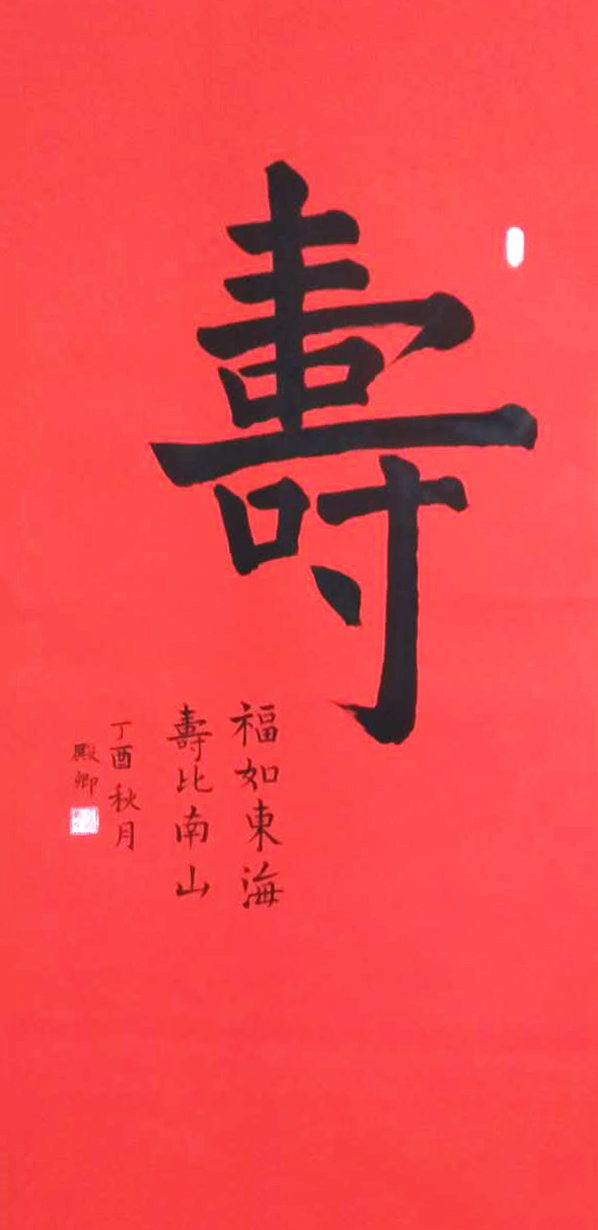 壽
福如東海
壽比南山
丁酉秋月
殿卿